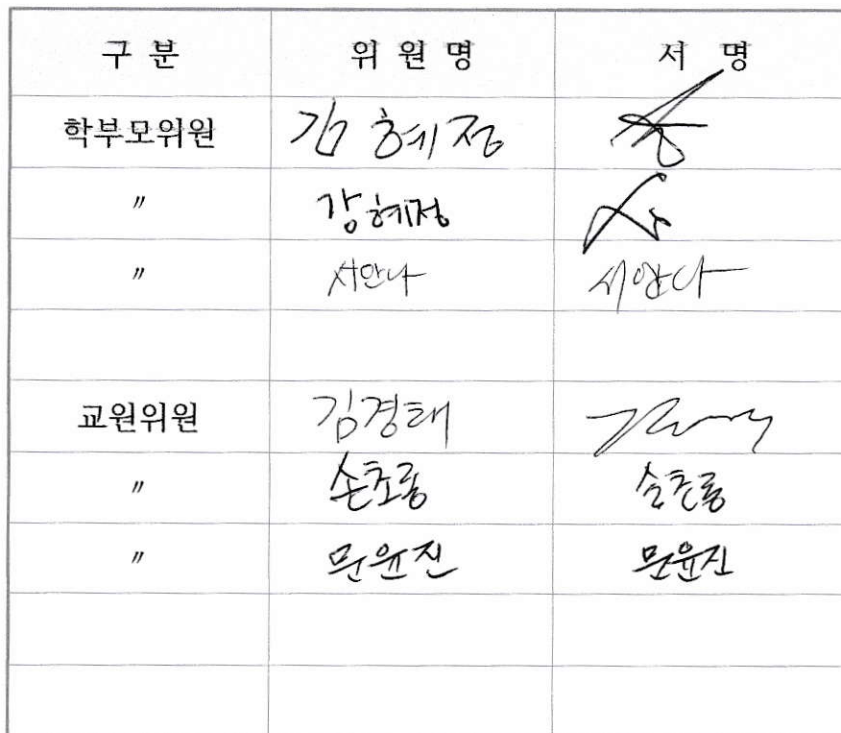 구 분 위 원 명 서 명
학부모위원 김혜정
〃 강혜정
〃 서안나 서안나
교원위원 김경태
〃 손초롱 손초롱
〃 문윤진 문윤진